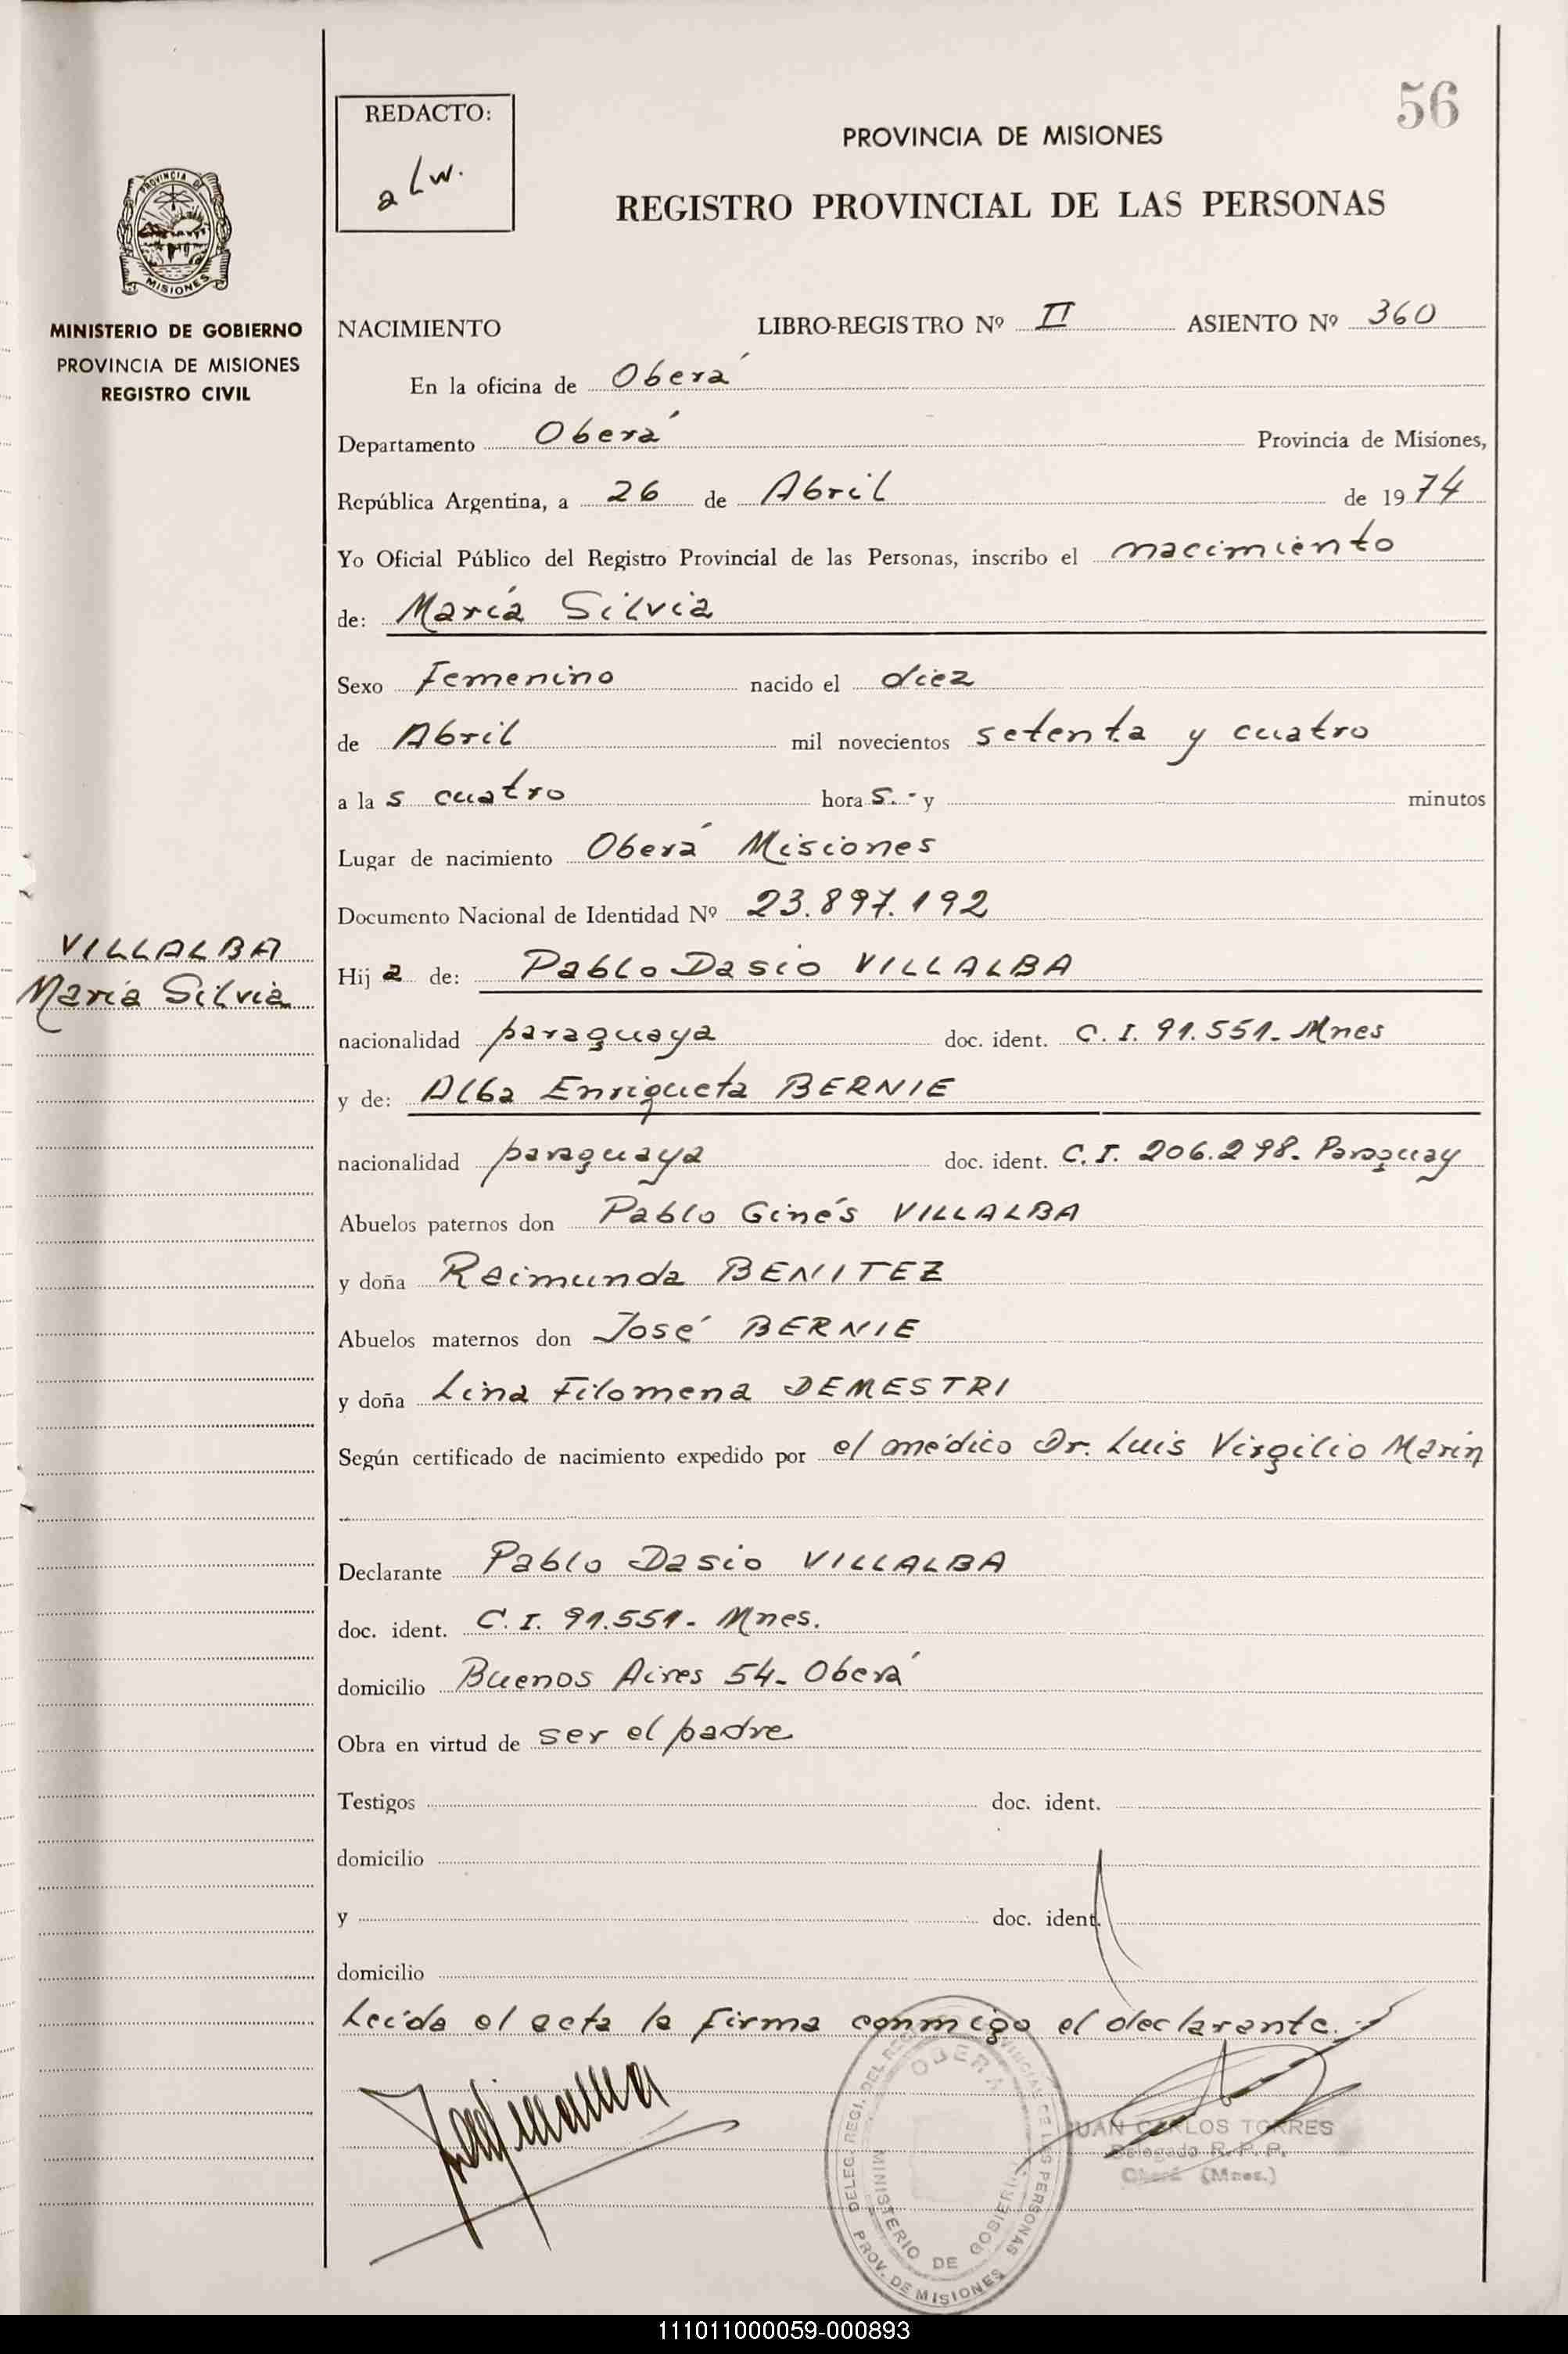 56
REDACTO:
a Lw.
PROVINCIA DE MISIONES
REGISTRO PROVINCIAL DE LAS PERSONAS
PROVINCIA DE
MISIONES
MINISTERIO DE GOBIERNO
PROVINCIA DE MISIONES
REGISTRO CIVIL
NACIMIENTO LIBRO-REGISTRO Nº II ASIENTO Nº 360
En la oficina de Oberá
Departamento Oberá Provincia de Misiones,
República Argentina, a 26 de Abril de 1974
Yo Oficial Público del Registro Provincial de las Personas, inscribo el nacimiento
de: María Silvia
Sexo Femenino nacido el diez
de Abril mil novecientos setenta y cuatro
a la s cuatro hora s.- y minutos
Lugar de nacimiento Oberá Misiones
Documento Nacional de Identidad Nº 23.897.192
VILLALBA
María Silvia
Hij a de: Pablo Dasio VILLALBA
nacionalidad paraguaya doc. ident. C. I. 91.551- Mnes
y de: Alba Enriqueta BERNIE
nacionalidad paraguaya doc. ident. C. I. 206.298- Paraguay
Abuelos paternos don Pablo Ginés VILLALBA
y doña Raimunda BENITEZ
Abuelos maternos don José BERNIE
y doña Lina Filomena DEMESTRI
Según certificado de nacimiento expedido por el médico Dr. Luis Virgilio Marin
Declarante Pablo Dasio VILLALBA
doc. ident. C. I. 91.551- Mnes.
domicilio Buenos Aires 54- Oberá
Obra en virtud de ser el padre
Testigos doc. ident.
domicilio
y doc. ident.
domicilio
Leída el acta la firma conmigo el declarante.
OBERA
MINISTERIO DE GOBIERNO
PROV. DE MISIONES
JUAN CARLOS TORRES
Delegado R. P. P.
Oberá (Mnes.)
111011000059-000893